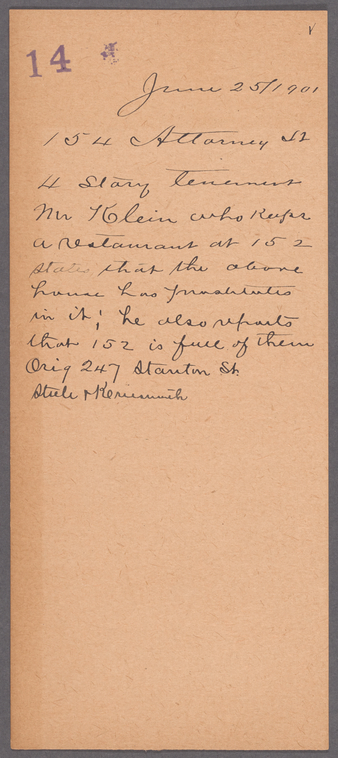 14 *
June 25/1901
154 Attorney St
4 Story tenement
Mr Klein who keeps
a restaurant at 152
states that the above
house has prostitutes
in it; he also reports
that 152 is full of them
Orig 247 Stanton St.
Steele &